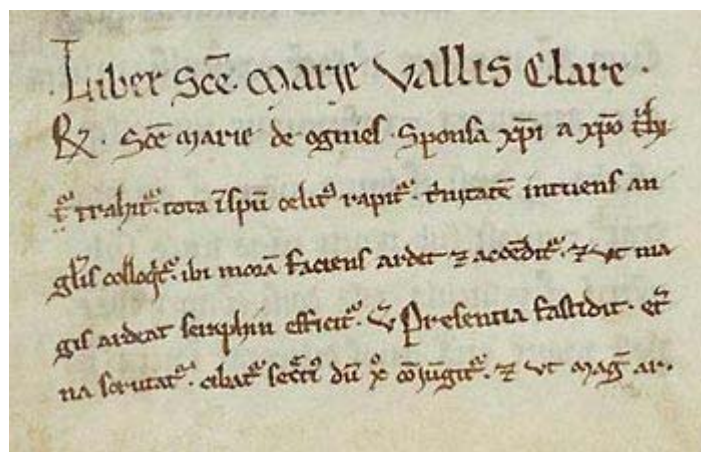 Liber Sc̄e Marie Vallis Clare.
R̷. Sc̄e marie de ogines. Sponsa xp̄i a xp̄o
trahit᷑. tota ī sp̄u celit᷑ rapit᷑. t̓nitatē intuens an
gl̓is colloq̓t᷑. ibi morā faciens ardet ⁊ accēdit᷑. ⁊ ut ma
gis ardeat seraphin efficit᷑. V̷ Presentia fastidit. et̓
na scrutat᷑. cibat᷑ dū cōiūgit᷑. ⁊ ut maḡ ar.